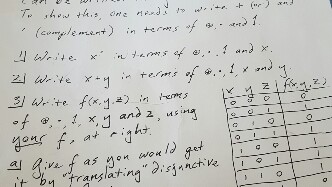 To show this, one needs to write + (or) and
' (complement) in terms of ⊕, · and 1.
1) Write x' in terms of ⊕, ·, 1 and x.
2) Write x+y in terms of ⊕, ·, 1, x and y.
3) Write f(x,y,z) in terms
of ⊕, ·, 1, x, y and z, using
your f, at right.
a) Give f as you would get
it by "translating" Disjunctive
x y z f(x,y,z)
0 0 0
0 0 1
0 1 0
0 1 1
1 0